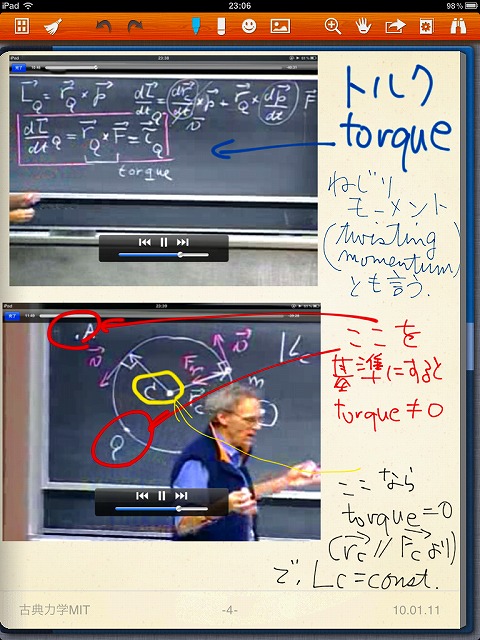 iPad
23:06
iPad 23:38
完了
L_Q = r_Q × p
dL_Q/dt = dr_Q/dt × p + r_Q × dp/dt
F
v
dL_Q/dt = r_Q × F = τ_Q
torque
トルク
torque
ねじり
モーメント
(twisting
momentum)
とも言う.
iPad 23:39
完了 11:48
A
v
F_c
v
L_c
C
r_c
m
Q
ここを
基準にすると
torque ≠ 0
ここなら
torque = 0
(r_c // F_c より)
で, L_c = const.
古典力学MIT
-4-
10.01.11